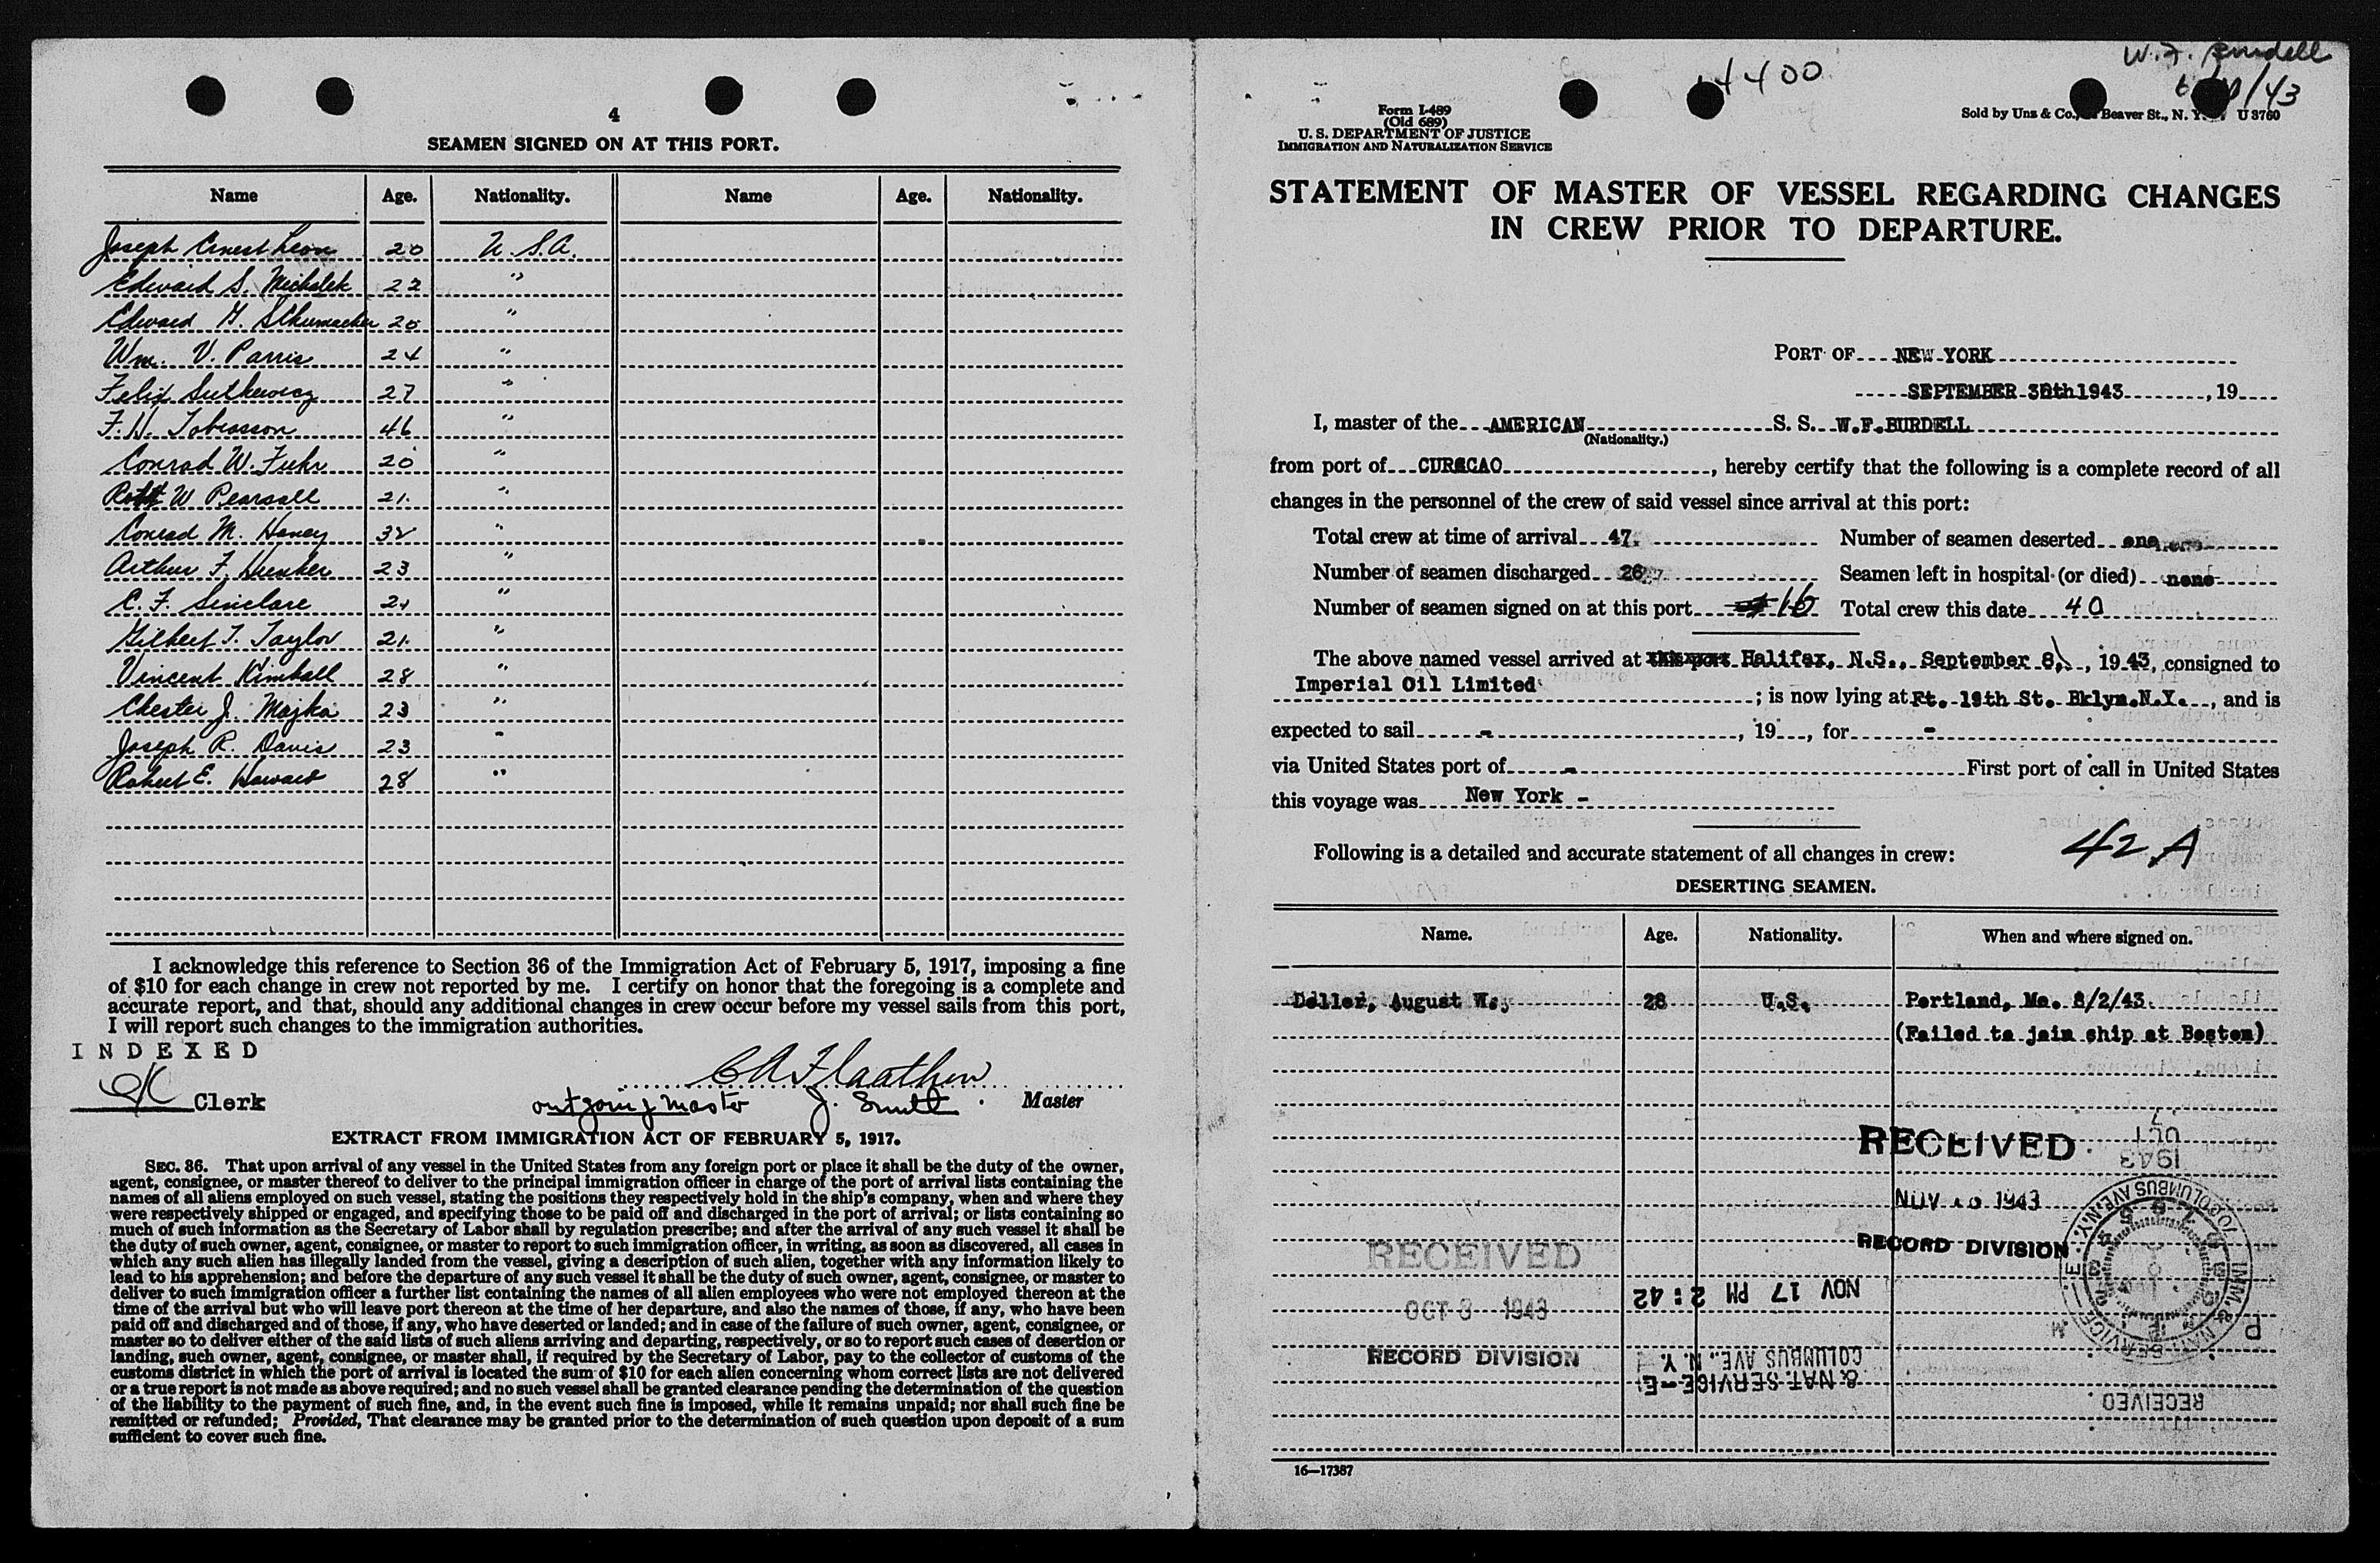 4
SEAMEN SIGNED ON AT THIS PORT.
Name Age. Nationality. Name Age. Nationality.
Joseph Ernest Leon 20 U.S.A.
Edward S. Michalek 22 "
Edward H. Schumacher 20 "
Wm. V. Parris 24 "
Felix Sutkewicz 27 "
F. H. Tobiasson 46 "
Conrad W. Fuhr 20 "
Robt W Pearsall 21. "
Conrad M. Haney 32 "
Arthur F. 23 "
C. F. Sinclare 21 "
Gilbert T. Taylor 21. "
Vincent Kimball 28 "
Chester J. Majka 23 "
Joseph R. Davis 23 "
Robert E. Howard 28 "
I acknowledge this reference to Section 36 of the Immigration Act of February 5, 1917, imposing a fine
of $10 for each change in crew not reported by me. I certify on honor that the foregoing is a complete and
accurate report, and that, should any additional changes in crew occur before my vessel sails from this port,
I will report such changes to the immigration authorities.
INDEXED
Clerk
C A Flaathen
outgoing master J. Smith. Master
EXTRACT FROM IMMIGRATION ACT OF FEBRUARY 5, 1917.
SEC. 36. That upon arrival of any vessel in the United States from any foreign port or place it shall be the duty of the owner,
agent, consignee, or master thereof to deliver to the principal immigration officer in charge of the port of arrival lists containing the
names of all aliens employed on such vessel, stating the positions they respectively hold in the ship's company, when and where they
were respectively shipped or engaged, and specifying those to be paid off and discharged in the port of arrival; or lists containing so
much of such information as the Secretary of Labor shall by regulation prescribe; and after the arrival of any such vessel it shall be
the duty of such owner, agent, consignee, or master to report to such immigration officer, in writing, as soon as discovered, all cases in
which any such alien has illegally landed from the vessel, giving a description of such alien, together with any information likely to
lead to his apprehension; and before the departure of any such vessel it shall be the duty of such owner, agent, consignee, or master to
deliver to such immigration officer a further list containing the names of all alien employees who were not employed thereon at the
time of the arrival but who will leave port thereon at the time of her departure, and also the names of those, if any, who have been
paid off and discharged and of those, if any, who have deserted or landed; and in case of the failure of such owner, agent, consignee, or
master so to deliver either of the said lists of such aliens arriving and departing, respectively, or so to report such cases of desertion or
landing, such owner, agent, consignee, or master shall, if required by the Secretary of Labor, pay to the collector of customs of the
customs district in which the port of arrival is located the sum of $10 for each alien concerning whom correct lists are not delivered
or a true report is not made as above required; and no such vessel shall be granted clearance pending the determination of the question
of the liability to the payment of such fine, and, in the event such fine is imposed, while it remains unpaid; nor shall such fine be
remitted or refunded; Provided, That clearance may be granted prior to the determination of such question upon deposit of a sum
sufficient to cover such fine.
W. F. Burdell
4400
/43
Form I-489
(Old 689)
U. S. DEPARTMENT OF JUSTICE
IMMIGRATION AND NATURALIZATION SERVICE
Sold by Uns & Co., Beaver St., N. Y. U 3760
STATEMENT OF MASTER OF VESSEL REGARDING CHANGES
IN CREW PRIOR TO DEPARTURE.
PORT OF NEW YORK
SEPTEMBER 30th 1943, 19
I, master of the AMERICAN S. S. W.F.BURDELL
(Nationality.)
from port of CURACAO, hereby certify that the following is a complete record of all
changes in the personnel of the crew of said vessel since arrival at this port:
Total crew at time of arrival 47. Number of seamen deserted one
Number of seamen discharged 26 Seamen left in hospital (or died) none
Number of seamen signed on at this port 16 Total crew this date 40
The above named vessel arrived at this port Halifax, N.S., September 8, 1943, consigned to
Imperial Oil Limited; is now lying at Ft. 19th St. Bklyn.N.Y., and is
expected to sail -, 19, for -
via United States port of - First port of call in United States
this voyage was New York -
Following is a detailed and accurate statement of all changes in crew:
42 A
DESERTING SEAMEN.
Name. Age. Nationality. When and where signed on.
Deller, August W. 28 U.S. Portland, Me. 8/2/43.
(Failed to join ship at Boston)
RECEIVED
OCT 7 1943
NOV 1943
RECORD DIVISION
RECEIVED
OCT 8 1943
RECORD DIVISION
NOV 17 PM 2:42
COLUMBUS AVE., N.Y.
& NAT. SERVICE-E
RECEIVED
16—17387